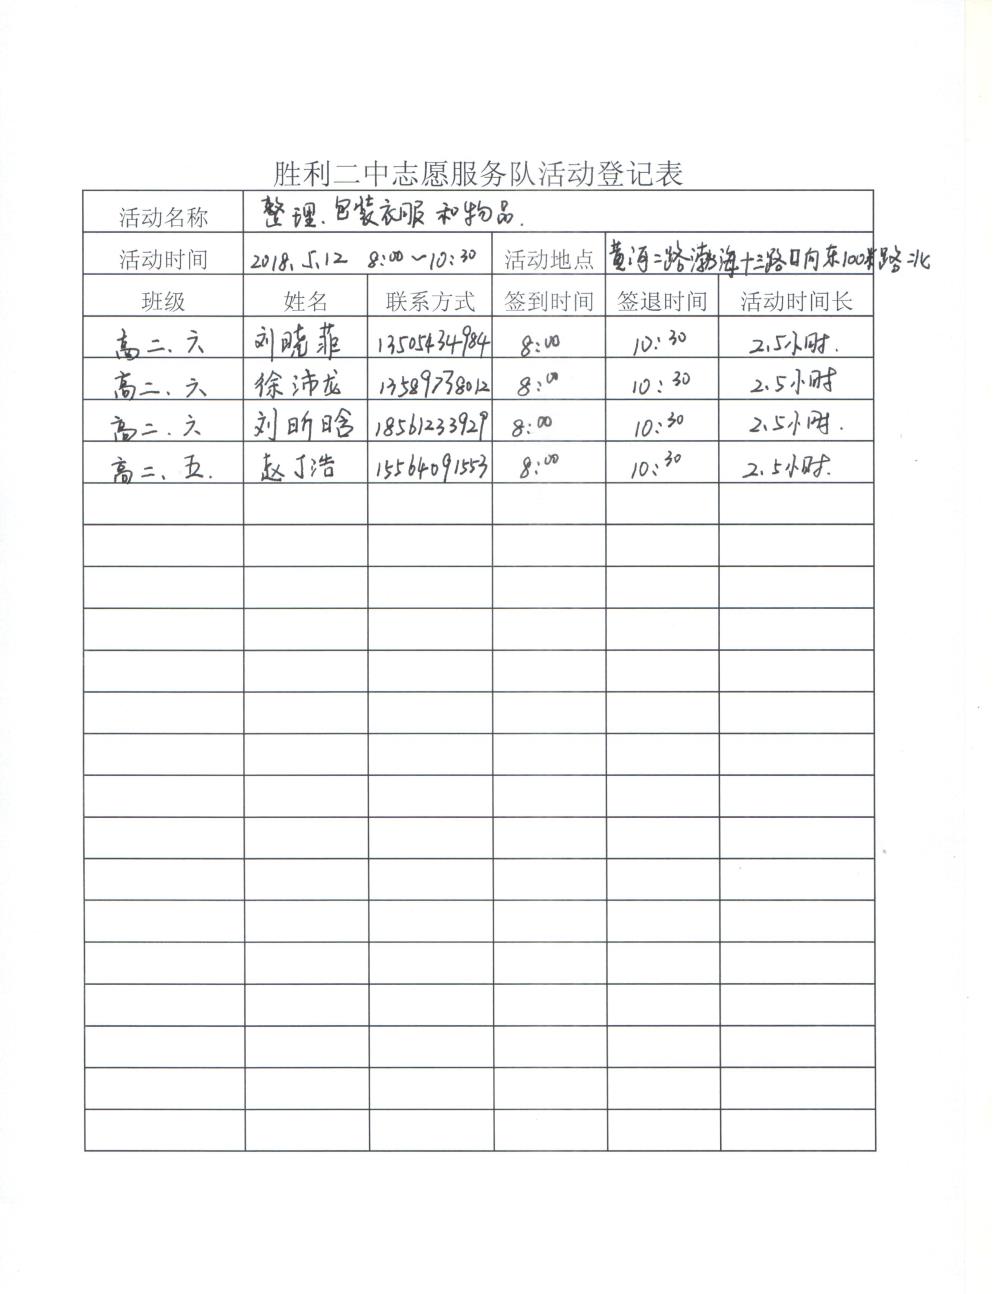 胜利二中志愿服务队活动登记表
活动名称 整理、包装衣服和物品.
活动时间 2018.5.12 8:00~10:30 活动地点 黄河二路渤海十三路口向东100米路北
班级 姓名 联系方式 签到时间 签退时间 活动时间长
高二、六 刘晓菲 13505434984 8:00 10:30 2.5小时.
高二、六 徐沛龙 13589738012 8:00 10:30 2.5小时
高二.六 刘昕晗 18561233929 8:00 10:30 2.5小时.
高二、五. 赵丁浩 15564091553 8:00 10:30 2.5小时.